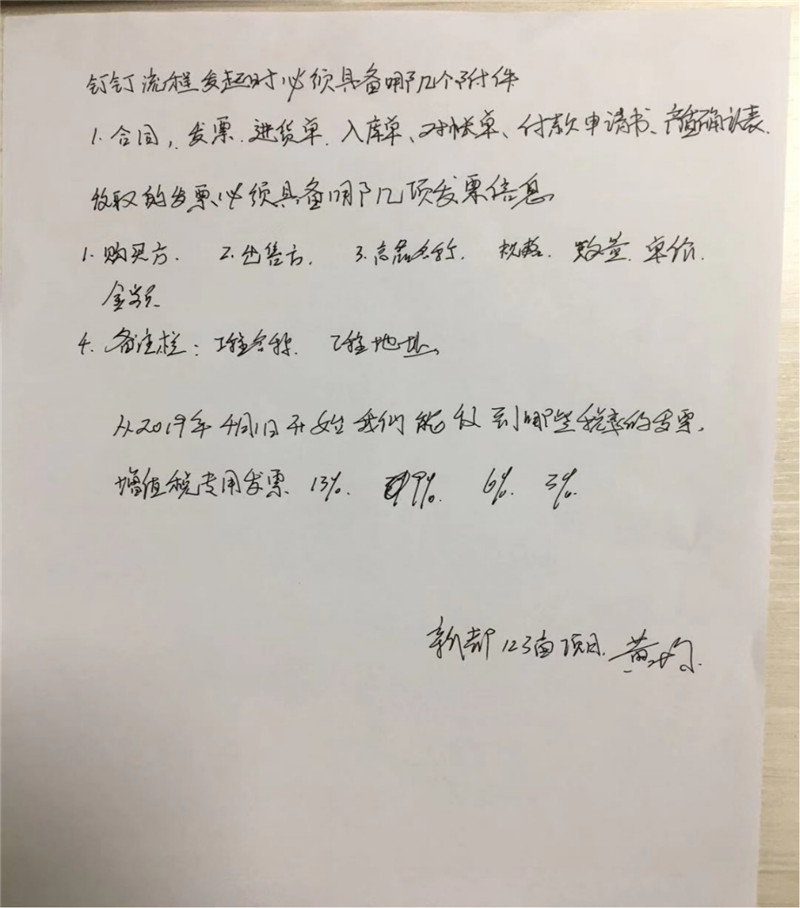 钉钉流程发起时必须具备哪几个附件
1. 合同, 发票、进货单、入库单、对帐单、付款申请书、产值确认表.
收取的发票必须具备哪几项发票信息
1. 购买方. 2. 出售方. 3. 商品名称. 规格. 数量. 单价.
金额.
4. 备注栏: 工程名称. 工程地址.
从2019年4月1日开始我们能收到哪些税率的发票.
增值税专用发票 13%. 9%. 6%. 3%.
新都123亩项目. 黄